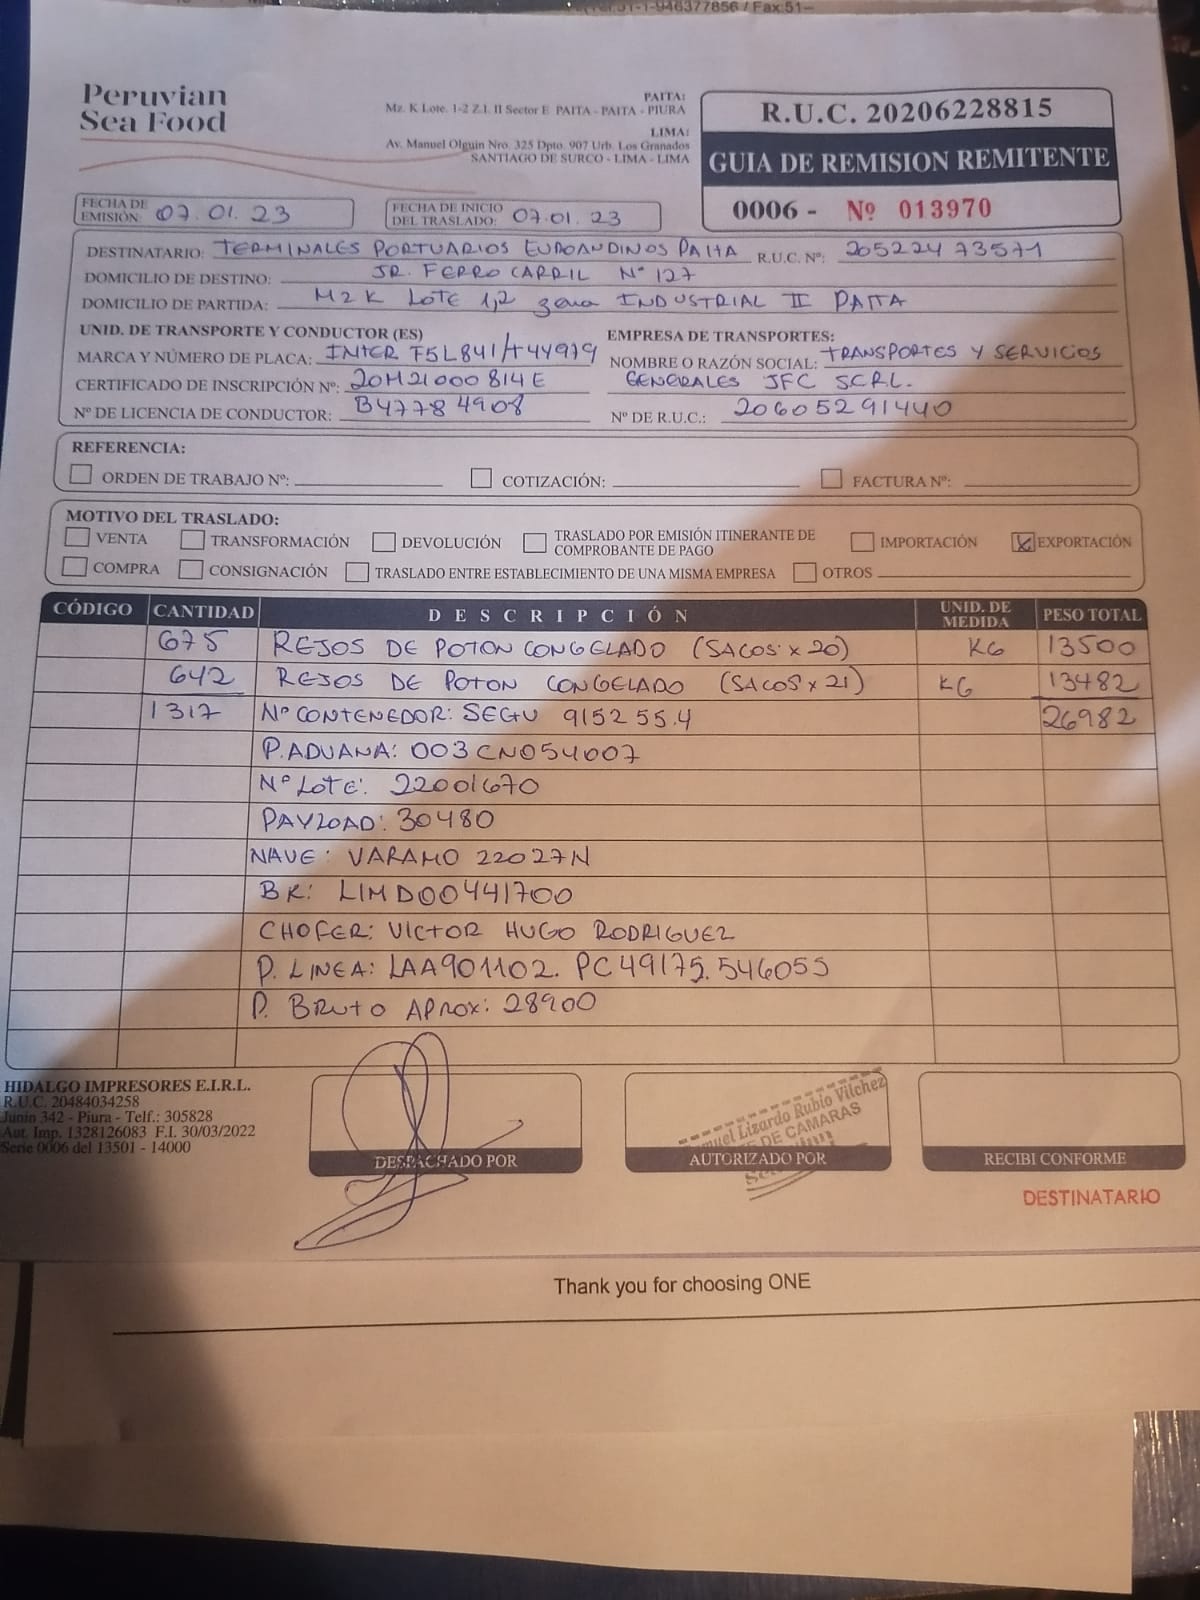 Peruvian
Sea Food
PAITA:
Mz. K Lote. 1-2 Z.I. II Sector E PAITA - PAITA - PIURA
LIMA:
Av. Manuel Olguin Nro. 325 Dpto. 907 Urb. Los Granados
SANTIAGO DE SURCO - LIMA - LIMA
R.U.C. 20206228815
GUIA DE REMISION REMITENTE
0006 - Nº 013970
FECHA DE EMISIÓN: 07.01.23
FECHA DE INICIO DEL TRASLADO: 07.01.23
DESTINATARIO: TERMINALES PORTUARIOS EUROANDINOS PAITA R.U.C. Nº: 20522473571
DOMICILIO DE DESTINO: JR. FERRO CARRIL Nº 127
DOMICILIO DE PARTIDA: MZ K LOTE 1,2 zona INDUSTRIAL II PAITA
UNID. DE TRANSPORTE Y CONDUCTOR (ES)
MARCA Y NÚMERO DE PLACA: INTER F5L841/T44979
CERTIFICADO DE INSCRIPCIÓN Nº: 20M21000814E
Nº DE LICENCIA DE CONDUCTOR: B47784908
EMPRESA DE TRANSPORTES:
NOMBRE O RAZÓN SOCIAL: TRANSPORTES Y SERVICIOS
GENERALES JFC SCRL.
Nº DE R.U.C.: 20605291440
REFERENCIA:
ORDEN DE TRABAJO Nº: COTIZACIÓN: FACTURA Nº:
MOTIVO DEL TRASLADO:
VENTA TRANSFORMACIÓN DEVOLUCIÓN TRASLADO POR EMISIÓN ITINERANTE DE COMPROBANTE DE PAGO IMPORTACIÓN EXPORTACIÓN
COMPRA CONSIGNACIÓN TRASLADO ENTRE ESTABLECIMIENTO DE UNA MISMA EMPRESA OTROS
CÓDIGO CANTIDAD DESCRIPCIÓN UNID. DE MEDIDA PESO TOTAL
675 REJOS DE POTON CONGELADO (SACOS x 20) KG 13500
642 REJOS DE POTON CONGELADO (SACOS x 21) KG 13482
1317 Nº CONTENEDOR: SEGU 915255.4 26982
P. ADUANA: 003CN054007
Nº LOTE: 22001670
PAYLOAD: 30480
NAVE: VARAMO 22027N
BK: LIMD00441700
CHOFER: VICTOR HUGO RODRIGUEZ
P. LINEA: LAA901102. PC49175. 546055
P. BRUTO APROX: 28900
HIDALGO IMPRESORES E.I.R.L.
R.U.C. 20484034258
Junin 342 - Piura - Telf.: 305828
Aut. Imp. 1328126083 F.I. 30/03/2022
Serie 0006 del 13501 - 14000
DESPACHADO POR
Lizardo Rubio Vilchez
DE CAMARAS
AUTORIZADO POR
RECIBI CONFORME
DESTINATARIO
Thank you for choosing ONE